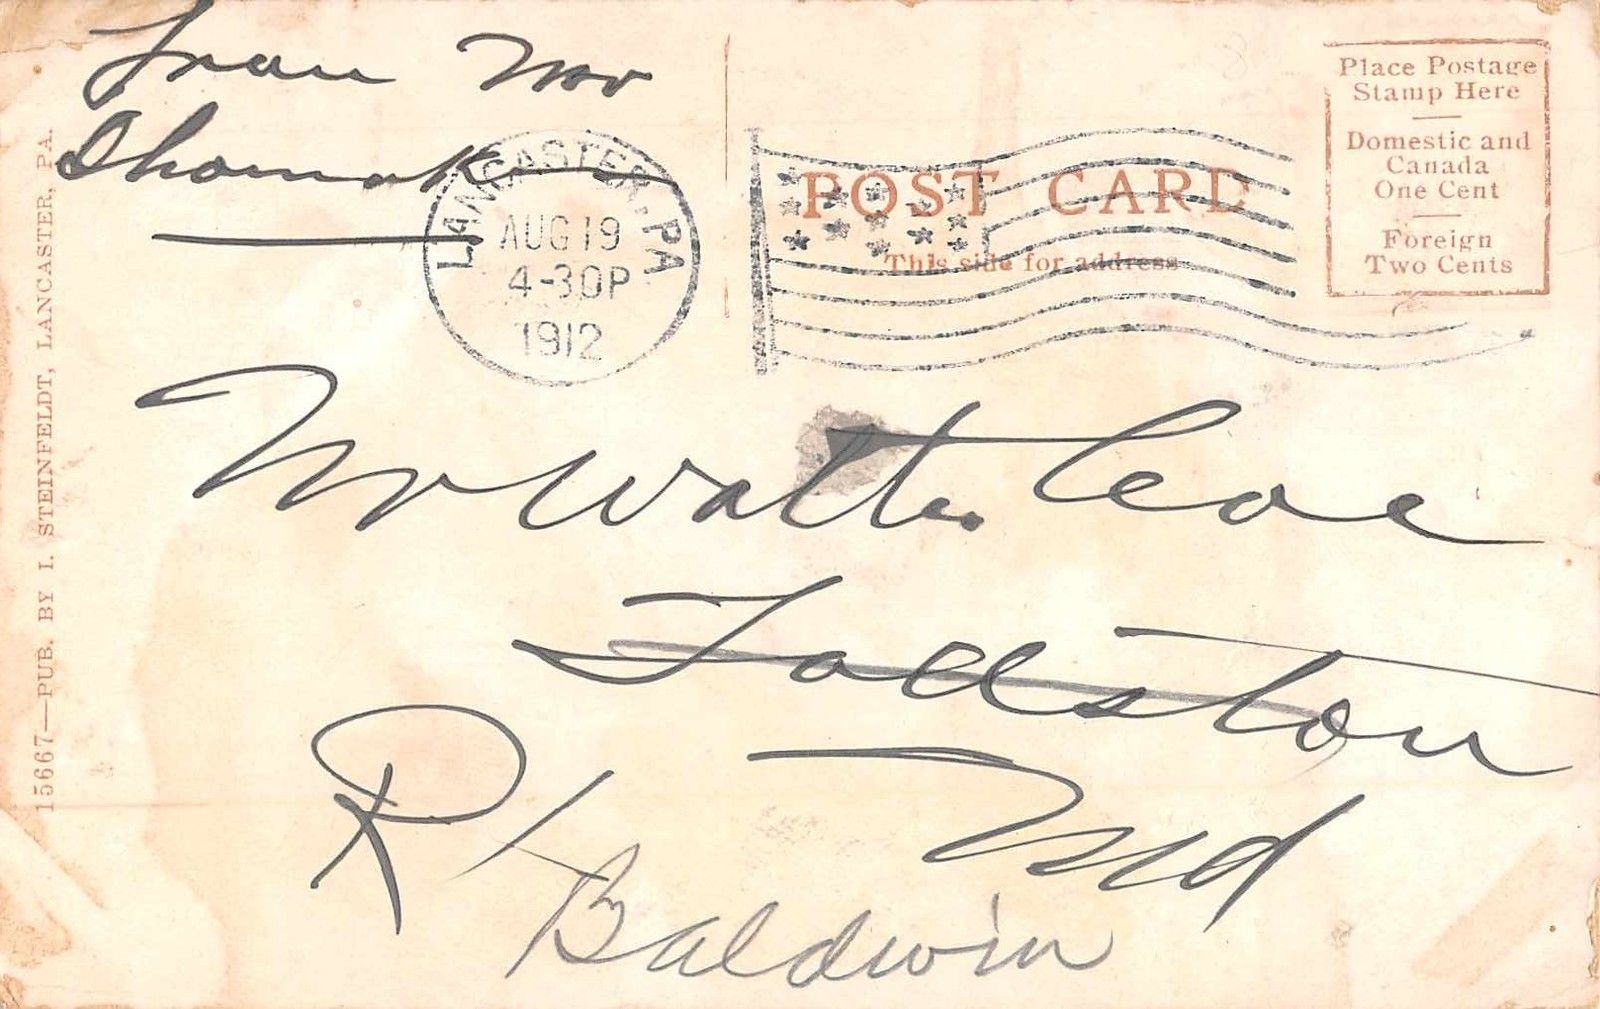 From Mr
Shomak
LANCASTER, PA.
AUG 19
4-30P
1912
POST CARD
This side for address
Place Postage
Stamp Here
Domestic and
Canada
One Cent
Foreign
Two Cents
15667—PUB. BY I. STEINFELDT, LANCASTER, PA.
Mr Walter Coe
Fallston
R1 Md
Baldwin